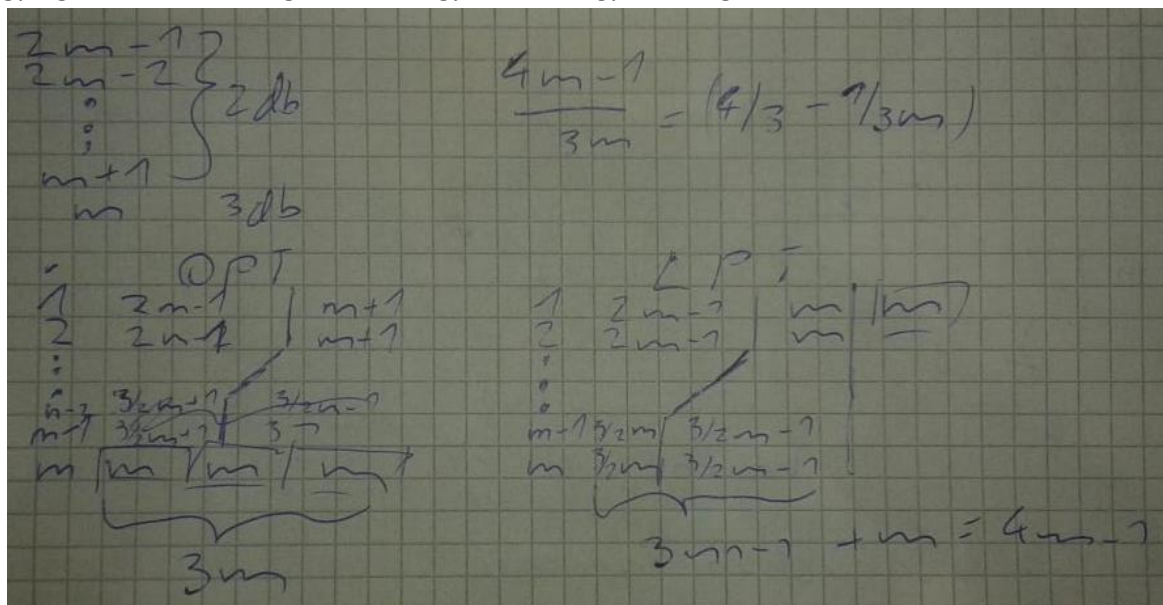 2m-1
2m-2
⋮
m+1
2db
m 3db
(4m-1)/3m = (4/3 - 1/3m)
OPT
1 2m-1 | m+1
2 2m-1 | m+1
⋮
m-1
m | m | m | m
3m
LPT
1 2m-1 | m | m
2 2m-1 | m
⋮
m-1 3/2m | 3/2m-1
m 3/2m | 3/2m-1
3m-1 + m = 4m-1